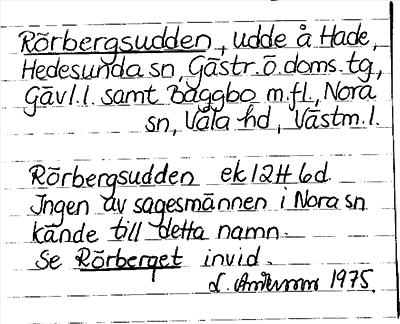 Rörbergsudden, udde å Hade,
Hedesunda sn, Gästr. ö. doms. tg,
Gävl. l. samt Baggbo m. fl., Nora
sn, Våla hd, Västm. l.
Rörbergsudden ek 12H 6d.
Ingen av sagesmännen i Nora sn
kände till detta namn.
Se Rörberget invid.
L. Andersson 1975.